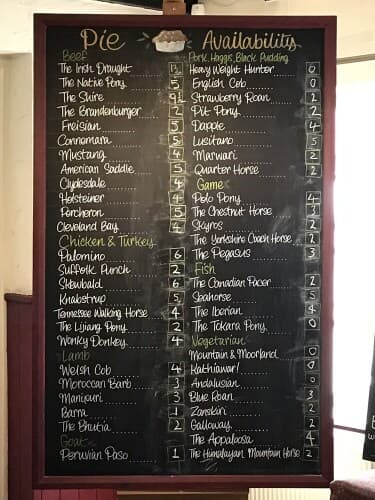 Pie Availability
Beef
The Irish Draught 1½
The Native Pony 5
The Shire 9½
The Brandenburger 2
Freisian 5
Connemara 5
Mustang 4
American Saddle 5
Clydesdale 4
Holsteiner 4
Percheron 5
Cleveland Bay 4
Chicken & Turkey
Palomino 6
Suffolk Punch 2
Skewbald 6
Knabstrup 5
Tennessee Walking Horse 4
The Lijiang Pony 2
Wonky Donkey 4
Lamb
Welsh Cob 4
Moroccan Barb 3
Manipuri 3
Barra 1
The Bhutia 2
Goat
Peruvian Paso 1
Pork, Haggis, Black Pudding
Heavy Weight Hunter 0
English Cob 0
Strawberry Roan 2
Pit Pony 2
Dapple 4
Lusitano 5
Marwari 2
Quarter Horse 2
Game
Polo Pony 4
The Chestnut Horse 3
Skyros 2
The Yorkshire Coach Horse 2
The Pegasus 3
Fish
The Canadian Pacer 2
Seahorse 5
The Iberian 4
The Tokara Pony 0
Vegetarian
Mountain & Moorland 0
Kathiawari 0
Andalusian 0
Blue Roan 3
Zaniskari 2
Galloway 2
The Appaloosa 4
The Himalayan Mountain Horse 2